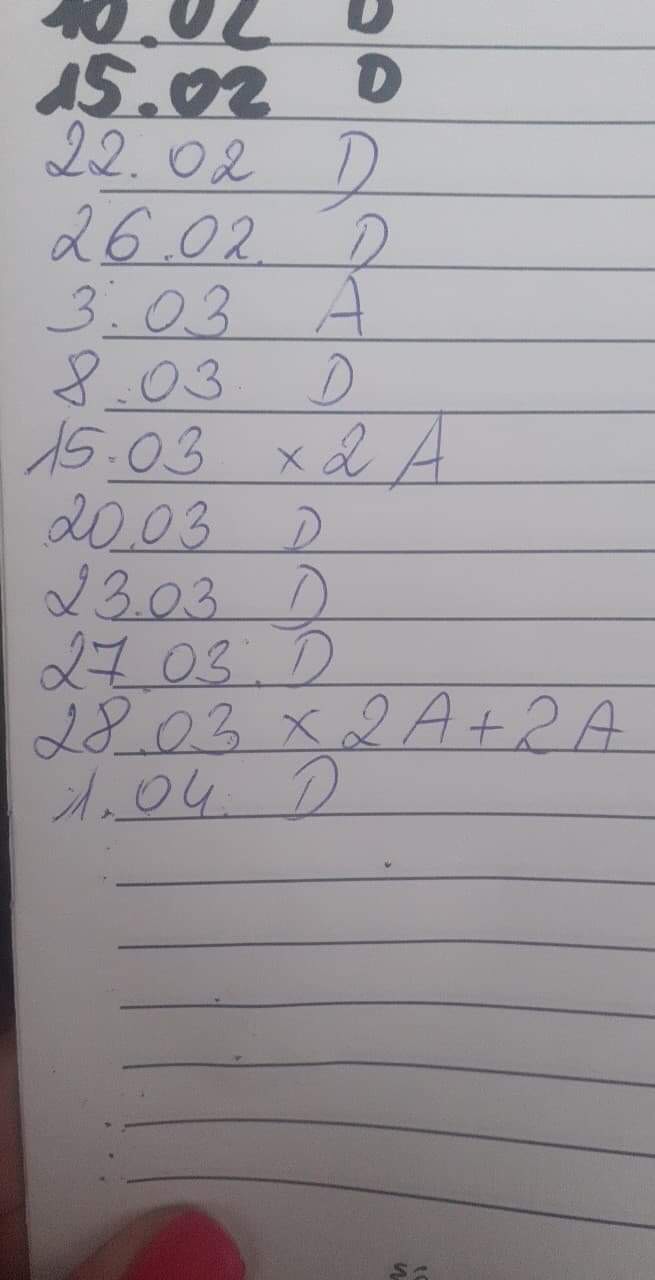 10.02 D
15.02 D
22.02 D
26.02. D
3.03 A
8.03 D
15.03 x 2 A
20.03 D
23.03 D
27.03. D
28.03 x 2A + 2A
1.04. D